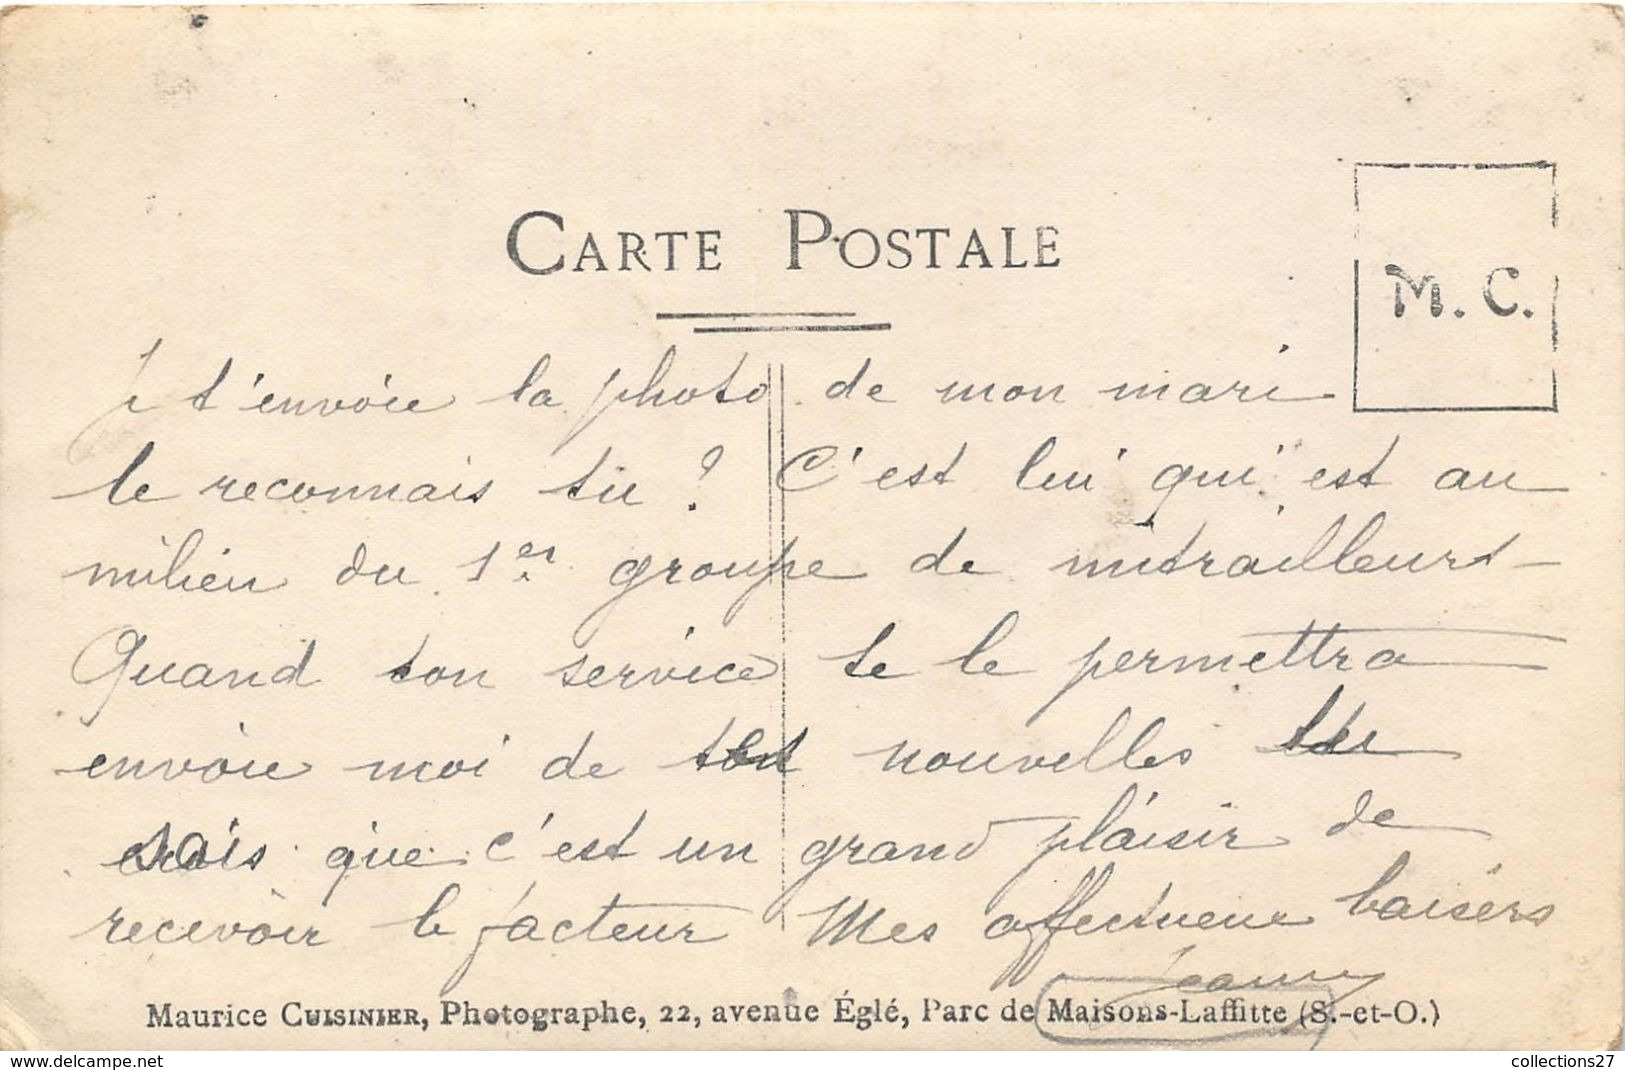 CARTE POSTALE
M. C.
Je t'envoie la photo de mon mari
le reconnais tu ? C'est lui qui est au
milieu du 1er groupe de mitrailleurs -
Quand ton service te le permettra
envoie moi de tes nouvelles tu
sais que c'est un grand plaisir de
recevoir le facteur Mes affectueux baisers
Maurice CUISINIER, Photographe, 22, avenue Églé, Parc de Maisons-Laffitte (S.-et-O.)
www.delcampe.net
collections27